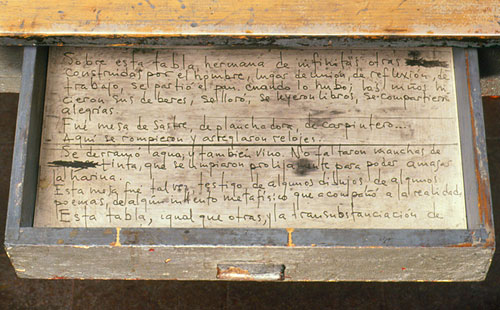 Sobre esta tabla, hermana de infinitas otras
construidas por el hombre, lugar de unión, de reflexión, de
trabajo, se partió el pan cuando lo hubo, los niños hi
cieron sus deberes, se lloró, se leyeron libros, se compartieron
alegrías.
Fue mesa de sastre, de planchadora, de carpintero...
Aquí se rompieron y arreglaron relojes.
Se derramó agua, y también vino. No faltaron manchas de
tinta, que se limpiaron prolijamente para poder amasar
la harina.
Esta mesa fue tal vez testigo de algunos dibujos, de algunos
poemas, de algún intento metafísico que acompañó a la realidad.
Esta tabla, igual que otras, y la transubstanciación de